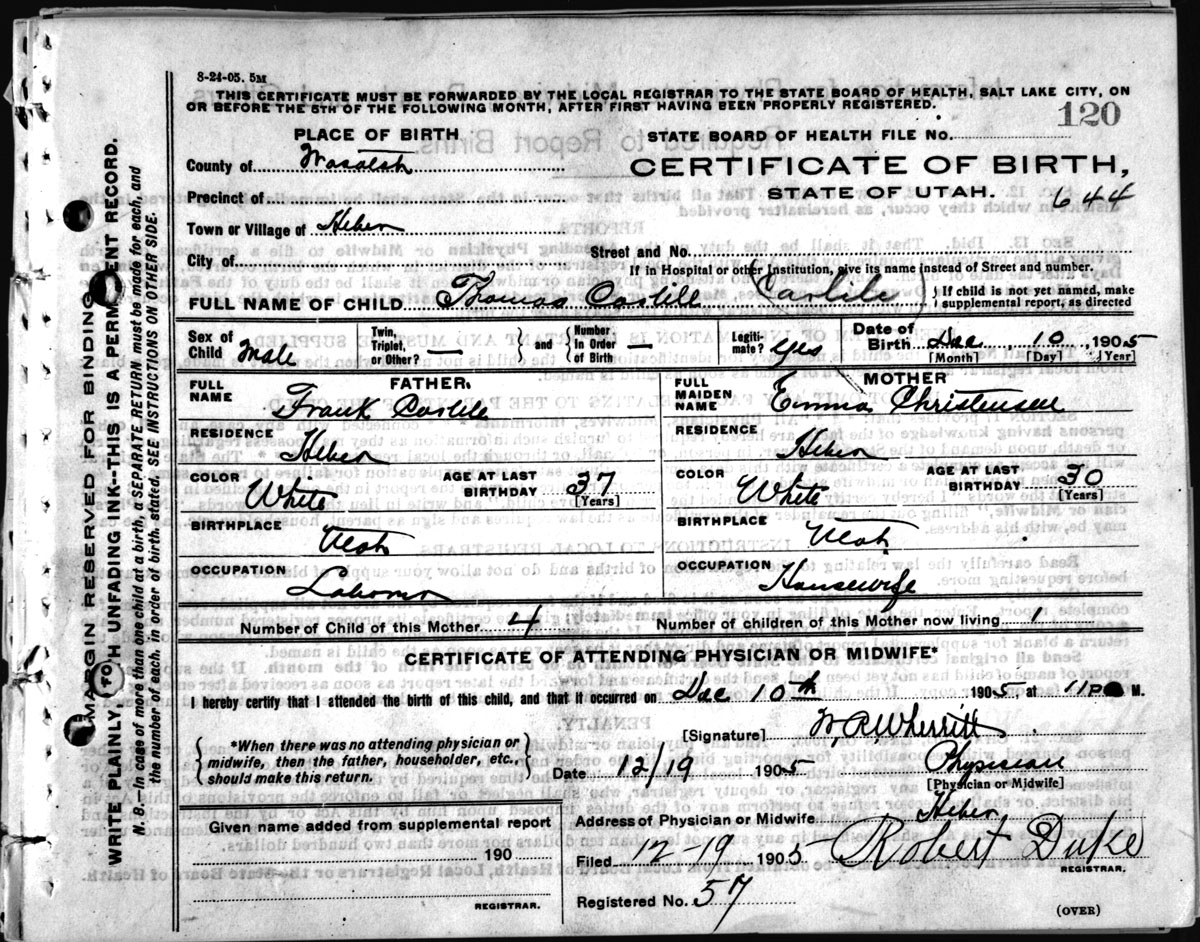 8-24-05. 5M
THIS CERTIFICATE MUST BE FORWARDED BY THE LOCAL REGISTRAR TO THE STATE BOARD OF HEALTH, SALT LAKE CITY, ON
OR BEFORE THE 5TH OF THE FOLLOWING MONTH, AFTER FIRST HAVING BEEN PROPERLY REGISTERED.
120
PLACE OF BIRTH
STATE BOARD OF HEALTH FILE NO.
County of Wasatch
CERTIFICATE OF BIRTH,
STATE OF UTAH. 644
Precinct of
Town or Village of Heber
City of
Street and No.
If in Hospital or other Institution, give its name instead of Street and number.
FULL NAME OF CHILD Thomas Carlile (Carlile) } If child is not yet named, make supplemental report, as directed
Sex of Child Male
Twin, Triplet, or Other? —
and
Number in Order of Birth —
Legitimate? Yes
Date of Birth Dec 10, 1905
[Month] [Day] [Year]
FATHER.
FULL NAME Frank Carlile
MOTHER
FULL MAIDEN NAME Emma Christensen
RESIDENCE Heber
RESIDENCE Heber
COLOR White
AGE AT LAST BIRTHDAY 37 [Years]
COLOR White
AGE AT LAST BIRTHDAY 30 [Years]
BIRTHPLACE Utah
BIRTHPLACE Utah
OCCUPATION Laborer
OCCUPATION Housewife
Number of Child of this Mother 4
Number of children of this Mother now living 1
CERTIFICATE OF ATTENDING PHYSICIAN OR MIDWIFE*
I hereby certify that I attended the birth of this child, and that it occurred on Dec 10th 1905 at 11 P M.
[Signature] W. R. Wherritt
{ *When there was no attending physician or midwife, then the father, householder, etc., should make this return. }
Date 12/19 1905
Physician
[Physician or Midwife]
Given name added from supplemental report
190
REGISTRAR.
Address of Physician or Midwife Heber
Filed 12-19 1905 Robert Duke
REGISTRAR.
Registered No. 57
(OVER)
MARGIN RESERVED FOR BINDING
WRITE PLAINLY, WITH UNFADING INK--THIS IS A PERMANENT RECORD.
N. B.—In case of more than one child at a birth, a SEPARATE RETURN must be made for each, and
the number of each, in order of birth stated, SEE INSTRUCTIONS ON OTHER SIDE.